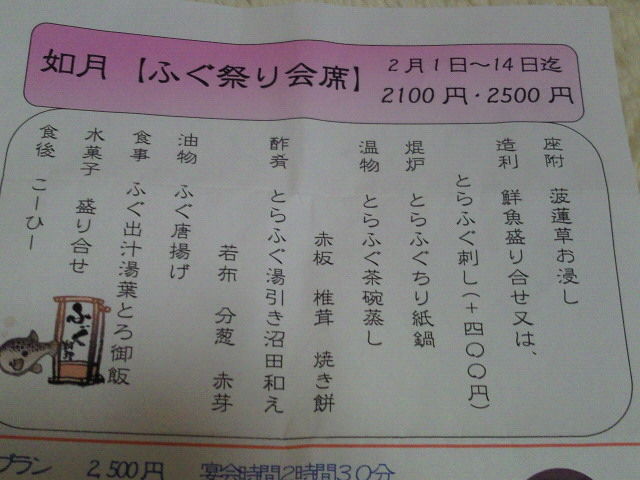 如月【ふぐ祭り会席】
2月1日～14日迄
2100円・2500円
座附　菠蓮草お浸し
造利　鮮魚盛り合せ又は、
とらふぐ刺し（＋四〇〇円）
焜炉　とらふぐちり紙鍋
温物　とらふぐ茶碗蒸し
赤板　椎茸　焼き餅
酢肴　とらふぐ湯引き沼田和え
若布　分葱　赤芽
油物　ふぐ唐揚げ
食事　ふぐ出汁湯葉とろ御飯
水菓子　盛り合せ
食後　こーひー
ふぐ
プラン　2,500円　宴会時間2時間30分